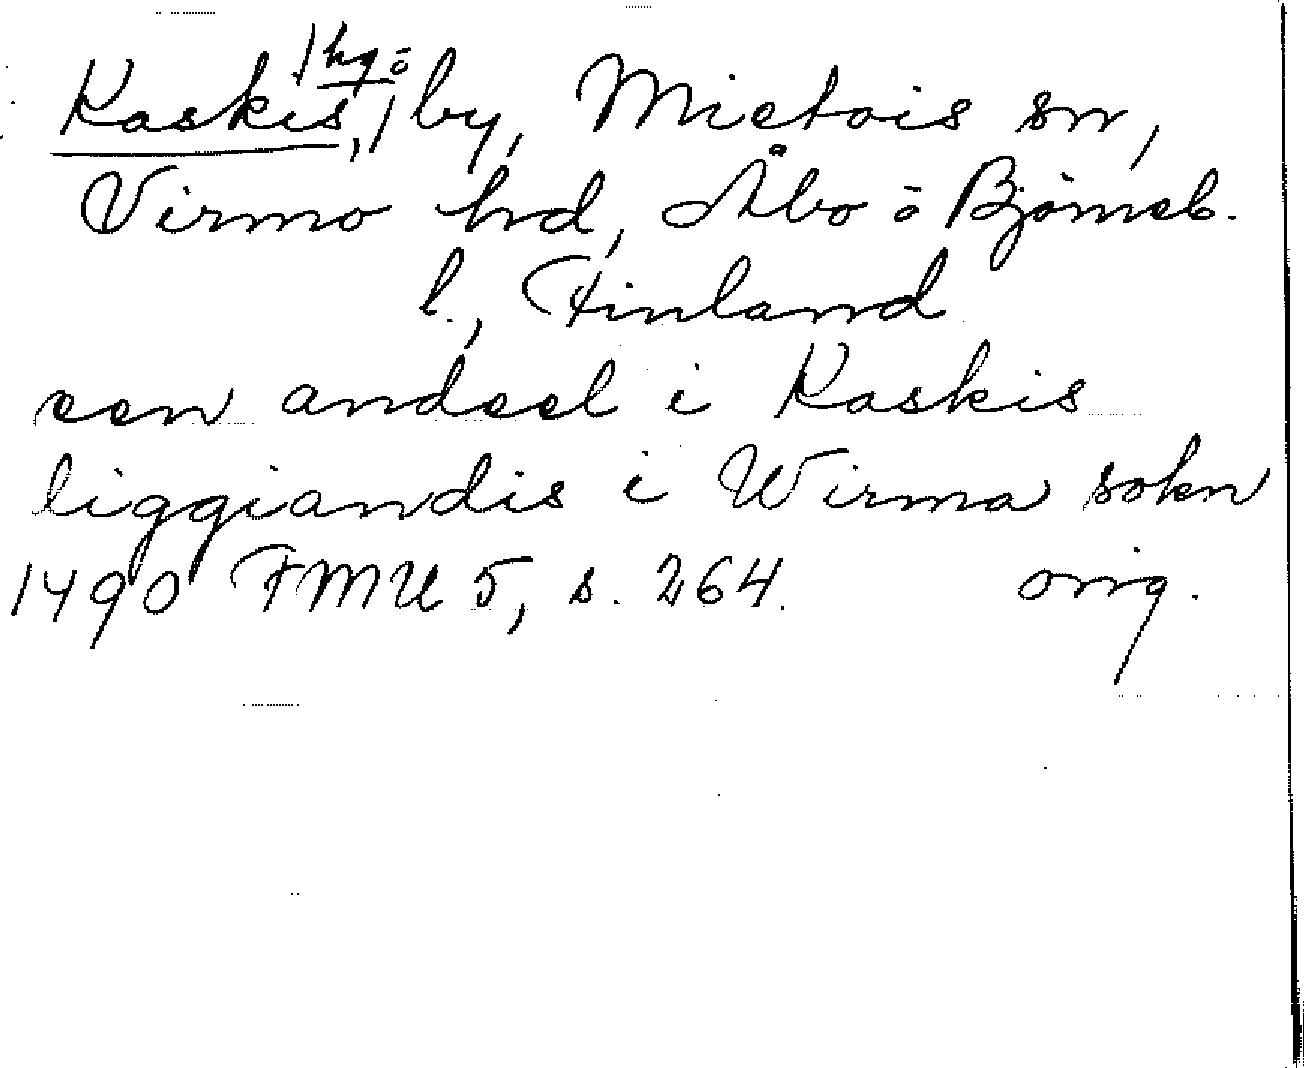 Kaskis, |hg o| by, Mietois sn,
Virmo hd, Åbo o Björneb.
l., Finland
een andeel i Kaskis
liggiandis i Wirma sokn
1490 FMU 5, s. 264. orig.